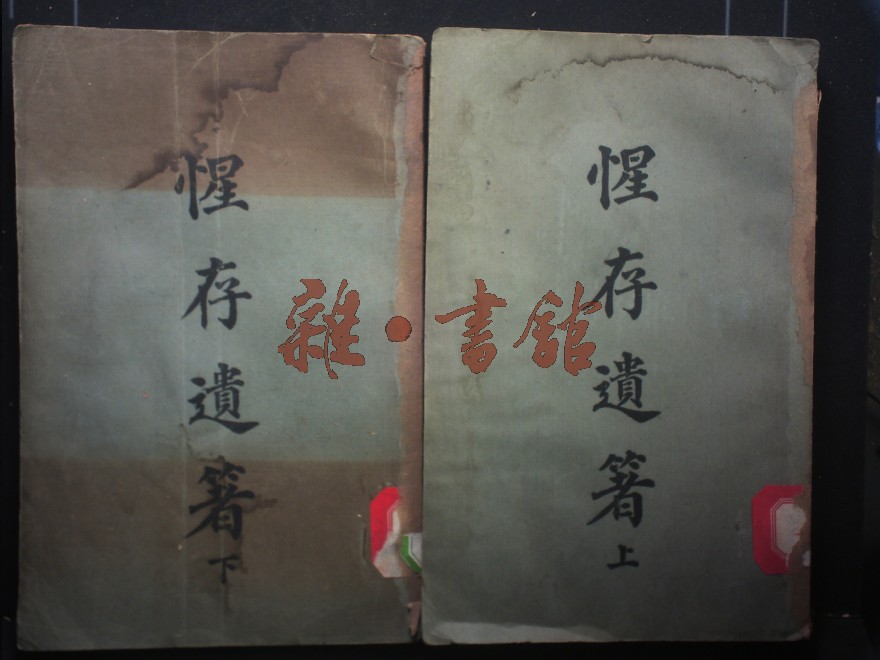 惺存遺箸
上
惺存遺箸
下
雜·書館